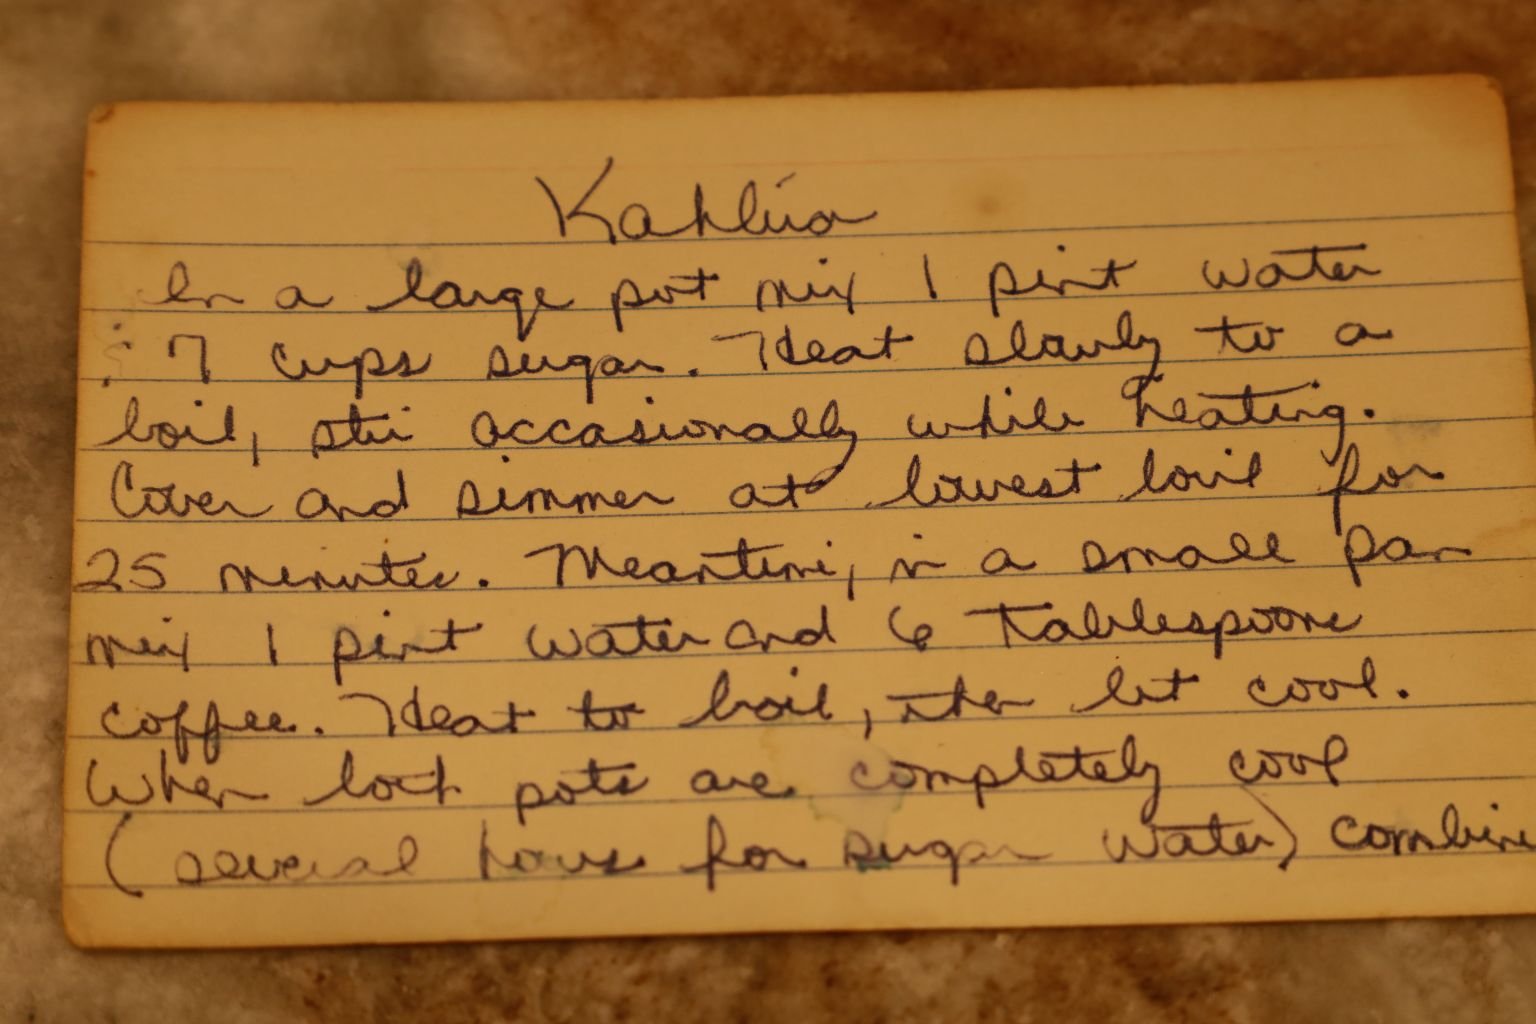 Kahlúa
In a large pot mix 1 pint water
& 7 cups sugar. Heat slowly to a
boil, stir occasionally while heating.
Cover and simmer at lowest boil for
25 minutes. Meantime, in a small pan
mix 1 pint water and 6 tablespoons
coffee. Heat to boil, then let cool.
When both pots are completely cool
(several hours for sugar water) combine